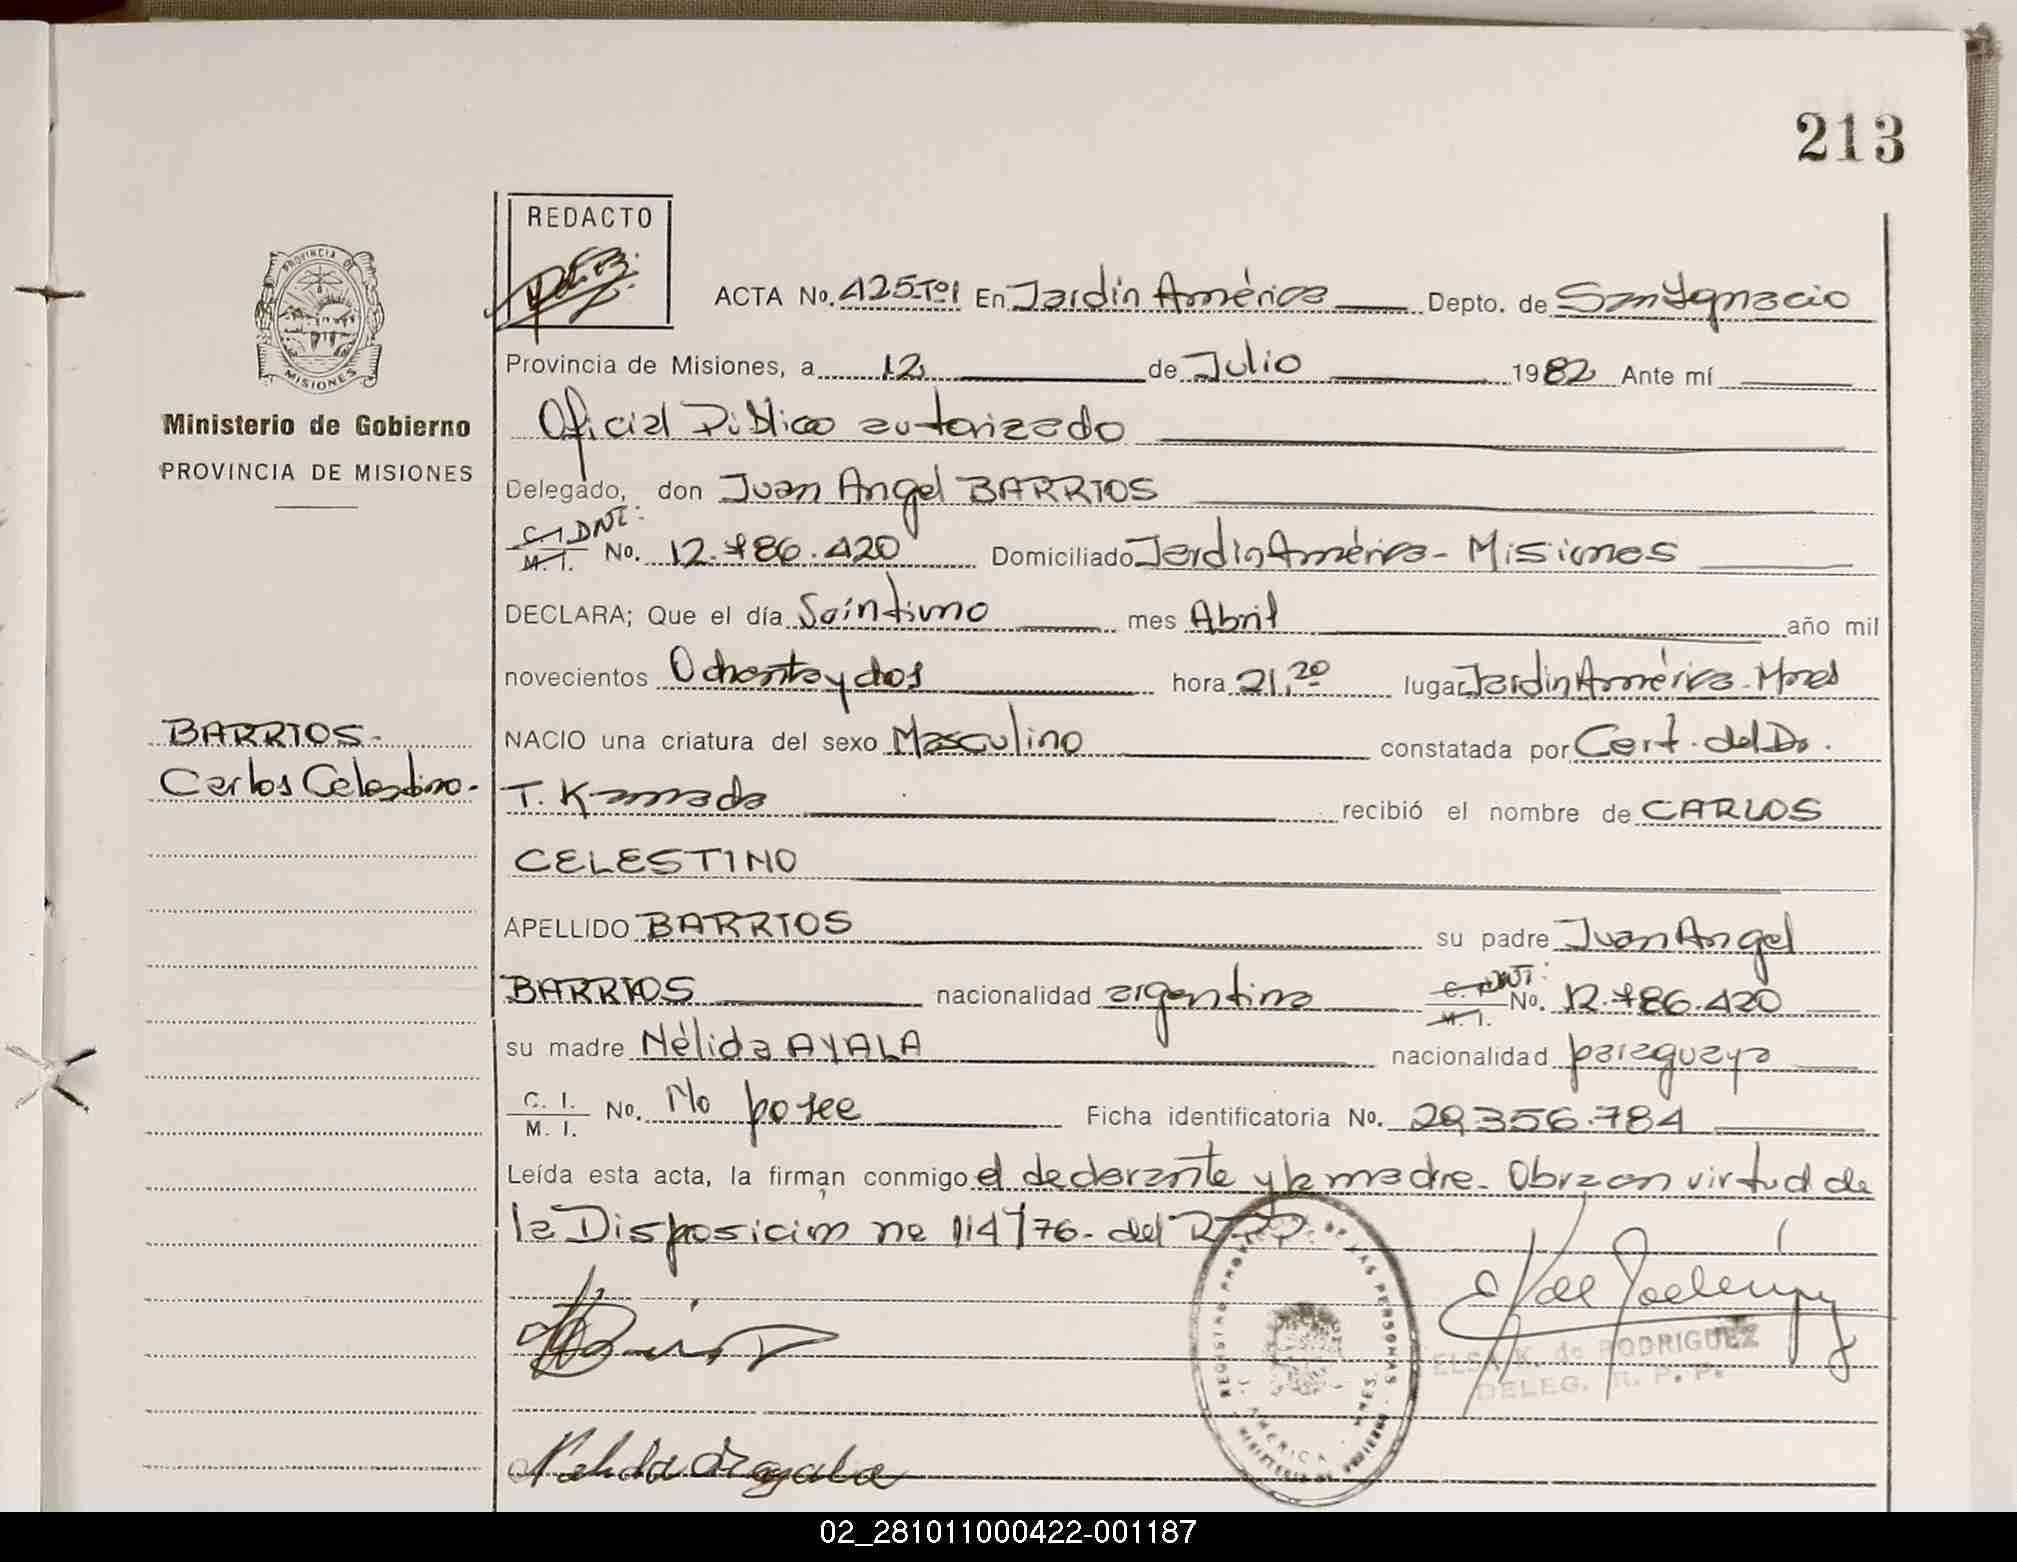 213
REDACTO
ACTA No. 425-Tº1 En Jardín América Depto. de San Ignacio
Provincia de Misiones, a 12 de Julio 1982 Ante mí
Ministerio de Gobierno
PROVINCIA DE MISIONES
Oficial Público autorizado
Delegado, don Juan Angel BARRIOS
C.I. DNI: M. I. No. 12.786.420 Domiciliado Jardín América - Misiones
DECLARA; Que el día mes Abril año mil
novecientos Ochenta y dos hora 21,20 lugar Jardín América - Mnes
BARRIOS -
Carlos Celestino -
NACIO una criatura del sexo Masculino constatada por Cert. del Dr.
T. Kamada recibió el nombre de CARLOS
CELESTINO
APELLIDO BARRIOS su padre Juan Angel
BARRIOS nacionalidad argentina C. I. DNI: M. I. No. 12.786.420
su madre Nélida AYALA nacionalidad paraguaya
C. I. M. I. No. No posee Ficha identificatoria No. 29.356.784
Leída esta acta, la firman conmigo el declarante y la madre. Obra en virtud de
la Disposición nº 114/76 - del R.P.P.
REGISTRO DE LAS PERSONAS
ELSA K. de RODRIGUEZ
DELEG. R. P. P.
02_281011000422-001187